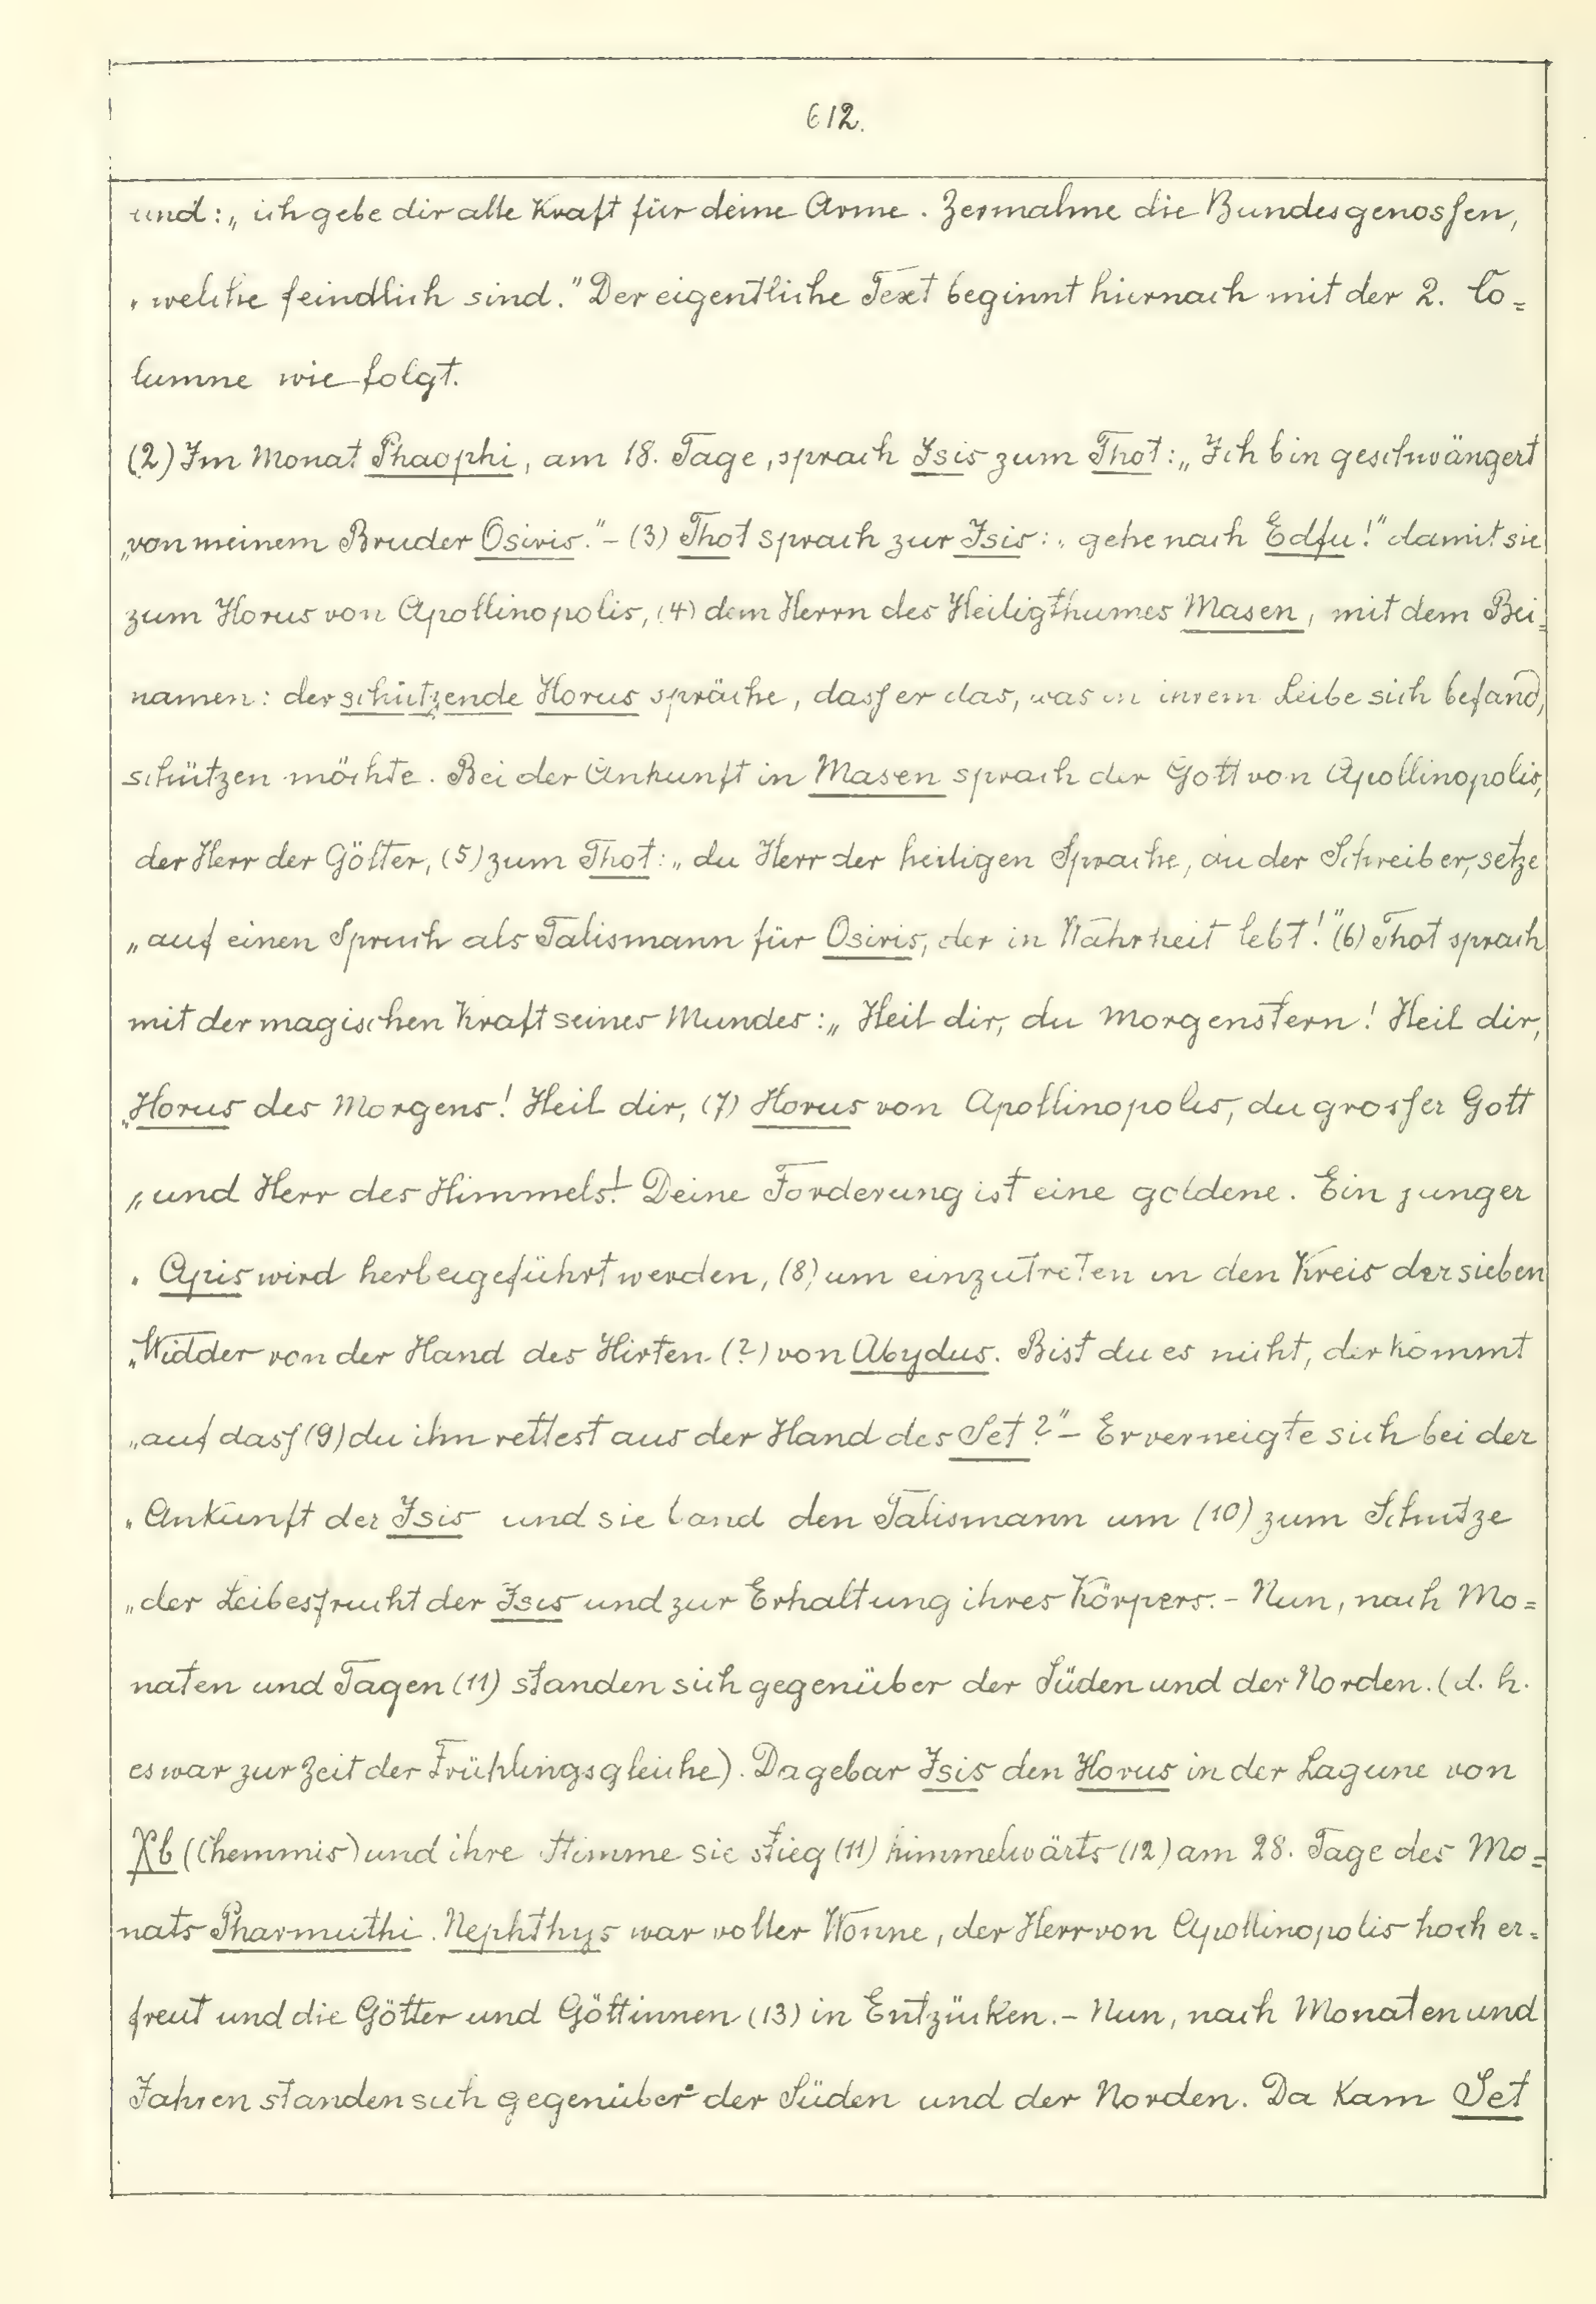 612.
und: „ich gebe dir alle Kraft für deine Arme. Zermalme die Bundesgenossen,
„welche feindlich sind." Der eigentliche Text beginnt hiernach mit der 2. Co=
lumne wie folgt.
(2) Im Monat Phaophi, am 18. Tage, sprach Isis zum Thot: „Ich bin geschwängert
„von meinem Bruder Osiris." – (3) Thot sprach zur Isis: „gehe nach Edfu!" damit sie
zum Horus von Apollinopolis, (4) dem Herrn des Heiligthumes Masen, mit dem Bei=
namen: der schützende Horus spräche, dass er das, was in ihrem Leibe sich befand,
schützen möchte. Bei der Ankunft in Masen sprach der Gott von Apollinopolis,
der Herr der Götter, (5) zum Thot: „du Herr der heiligen Sprache, du der Schreiber, setze
„auf einen Spruch als Talismann für Osiris, der in Wahrheit lebt!" (6) Thot sprach
mit der magischen Kraft seines Mundes: „Heil dir, du Morgenstern! Heil dir,
„Horus des Morgens! Heil dir, (7) Horus von Apollinopolis, du grosser Gott
„und Herr des Himmels! Deine Forderung ist eine goldene. Ein junger
„Apis wird herbeigeführt werden, (8) um einzutreten in den Kreis der sieben
„Widder von der Hand des Hirten (?) von Abydus. Bist du es nicht, der kommt
„auf dass (9) du ihn rettest aus der Hand des Set?" – Er verneigte sich bei der
„Ankunft der Isis und sie band den Talismann um (10) zum Schutze
„der Leibesfrucht der Isis und zur Erhaltung ihres Körpers. – Nun, nach Mo=
naten und Tagen (11) standen sich gegenüber der Süden und der Norden. (d. h.
es war zur Zeit der Frühlingsgleiche). Da gebar Isis den Horus in der Lagune von
Χb (Chemmis) und ihre Stimme sie stieg (11) himmelwärts (12) am 28. Tage des Mo=
nats Pharmuthi. Nephthys war voller Wonne, der Herr von Apollinopolis hoch er=
freut und die Götter und Göttinnen (13) in Entzücken. – Nun, nach Monaten und
Jahren standen sich gegenüber der Süden und der Norden. Da kam Set